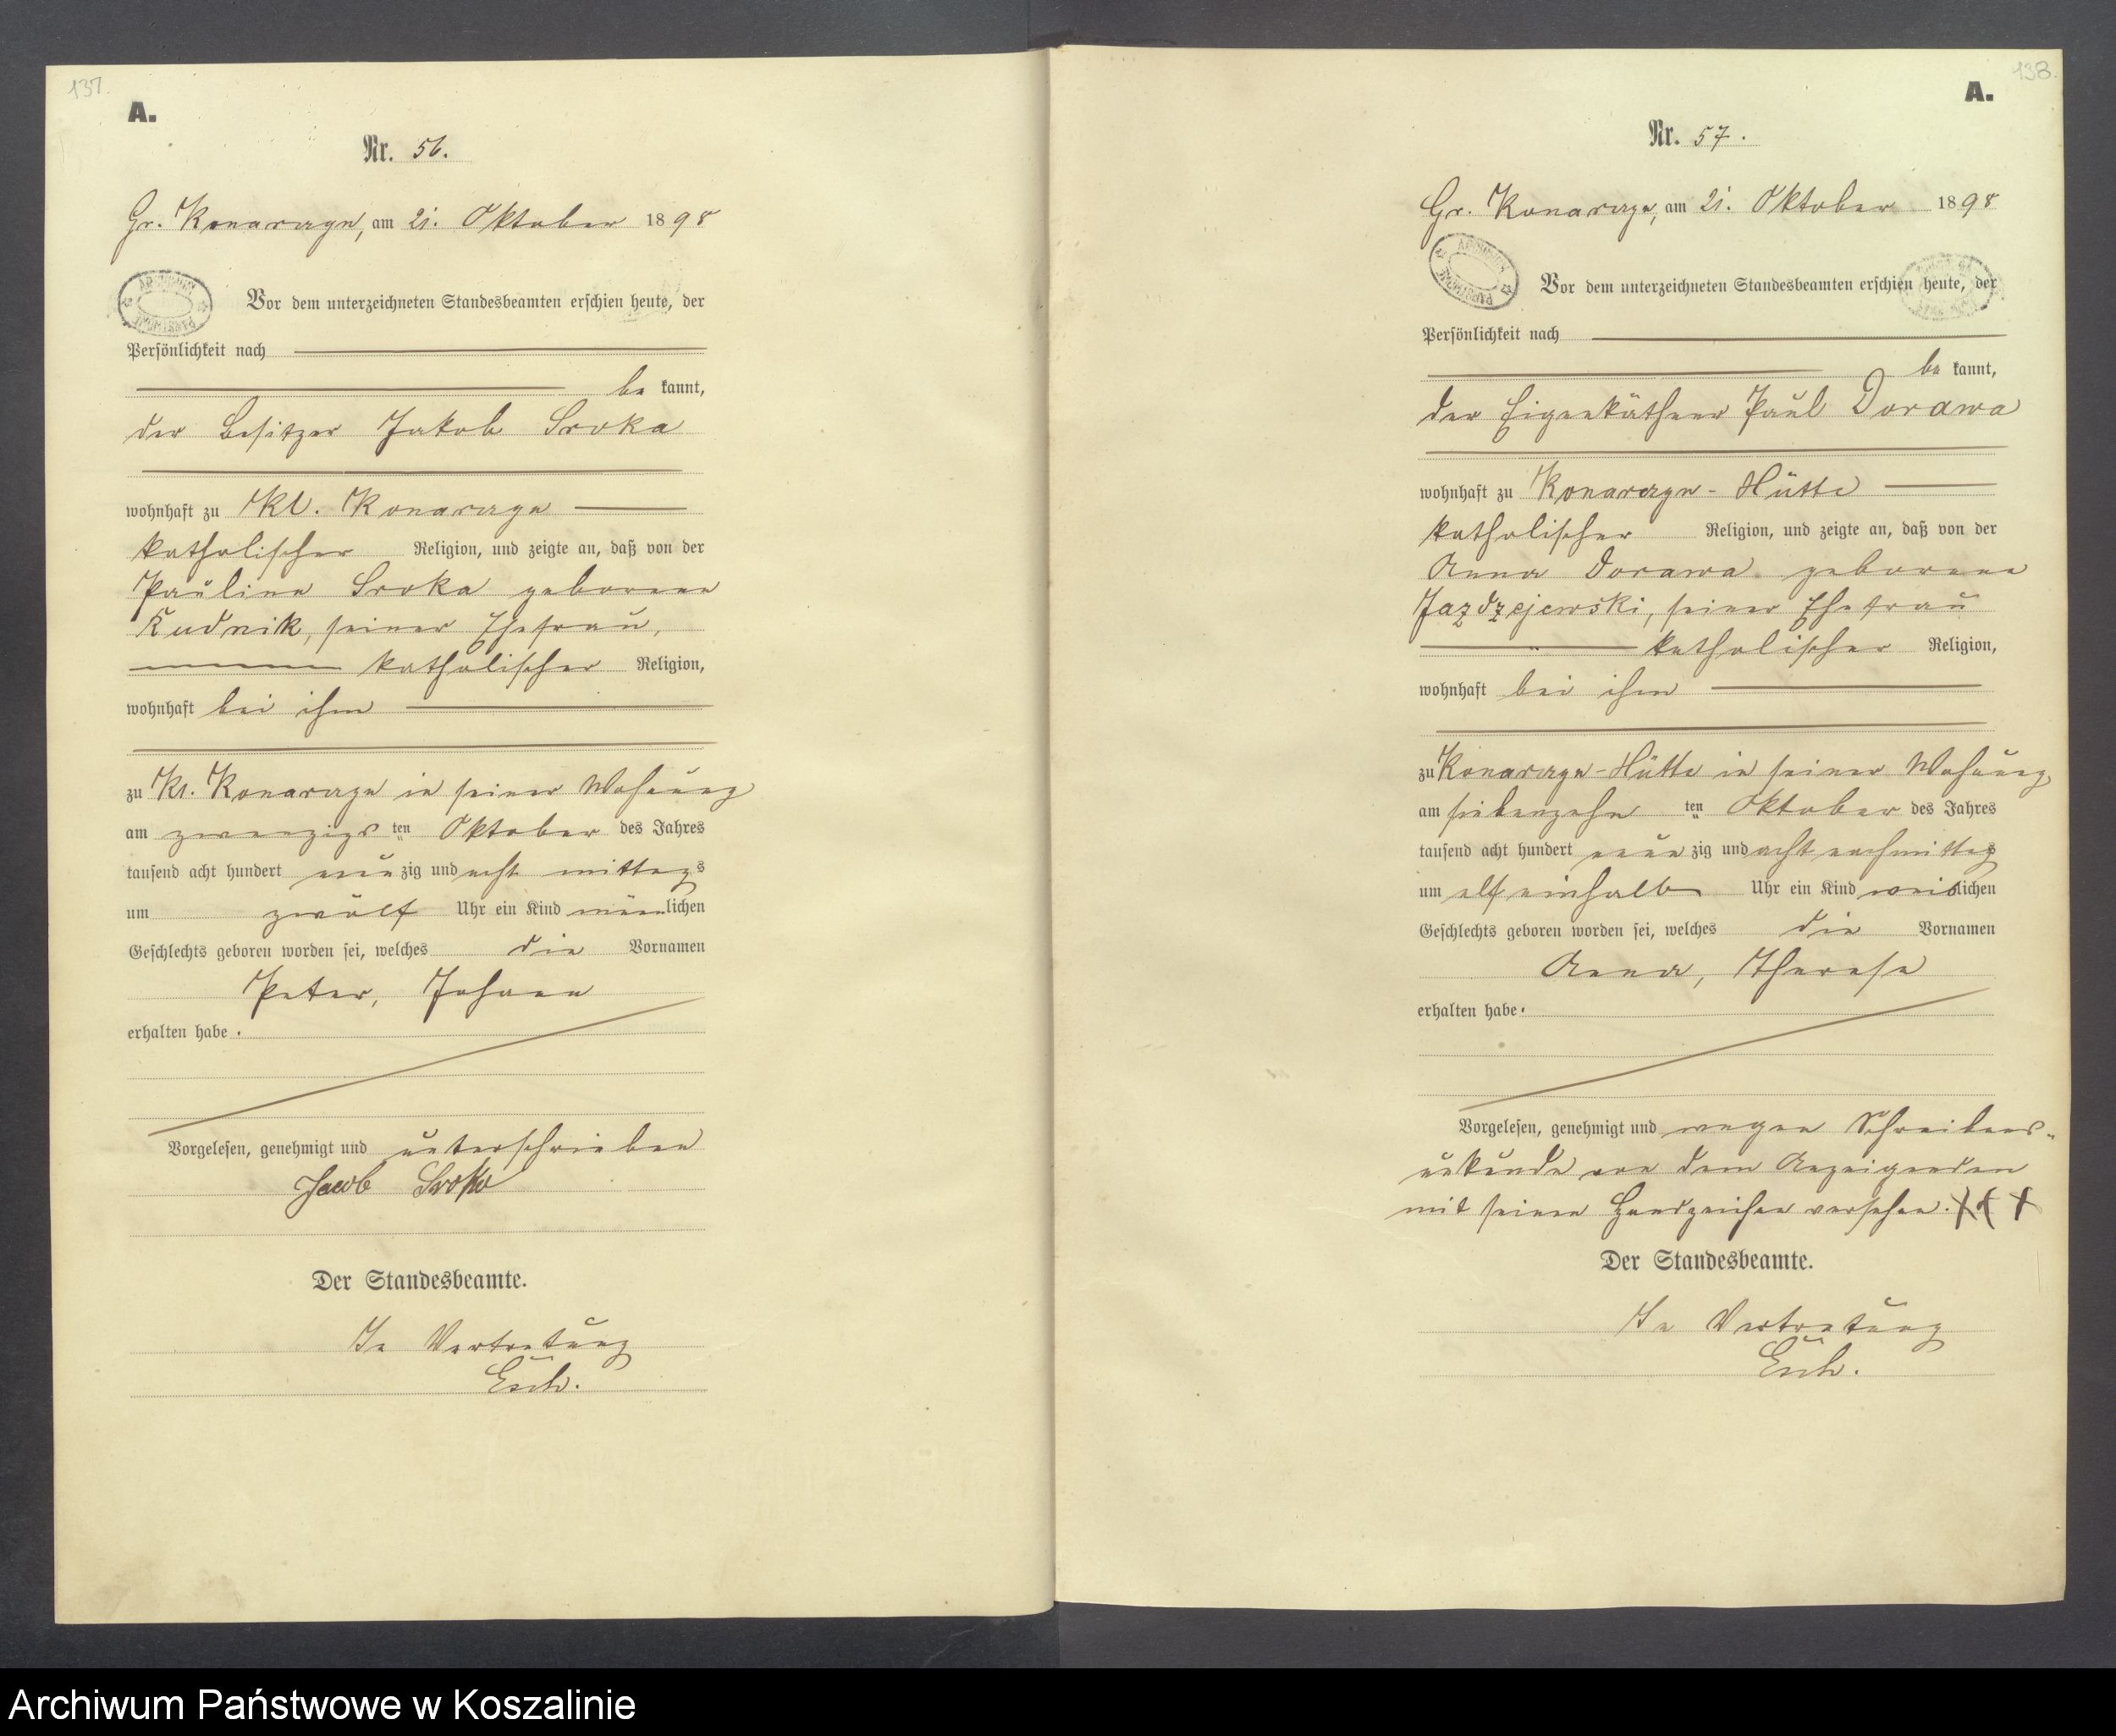 137.
A.
Nr. 56.
Gr. Konarczyn, am 21. Oktober 1898
ARCHIWUM PAŃSTWOWE
Vor dem unterzeichneten Standesbeamten erschien heute, der
Persönlichkeit nach
be kannt,
der Besitzer Jakob Sroka
wohnhaft zu Kl. Konarczyn
katholischer Religion, und zeigte an, daß von der
Pauline Sroka geborene
Rudnik, seiner Ehefrau,
katholischer Religion,
wohnhaft bei ihm
zu Kl. Konarczyn in seiner Wohnung
am zwanzigs ten Oktober des Jahres
tausend acht hundert neun zig und acht mittags
um zwölf Uhr ein Kind männlichen
Geschlechts geboren worden sei, welches die Vornamen
Peter, Johann
erhalten habe.
Vorgelesen, genehmigt und unterschrieben
Jacob Sroka
Der Standesbeamte.
In Vertretung
138.
A.
Nr. 57.
Gr. Konarczyn, am 21. Oktober 1898
ARCHIWUM PAŃSTWOWE
Vor dem unterzeichneten Standesbeamten erschien heute, der
Persönlichkeit nach
be kannt,
der Eigenkäthner Paul Dorawa
wohnhaft zu Konarczyn-Hütte
katholischer Religion, und zeigte an, daß von der
Anna Dorawa geborene
Jazdzejewski, seiner Ehefrau
katholischer Religion,
wohnhaft bei ihm
zu Konarczyn-Hütte in seiner Wohnung
am siebenzehn ten Oktober des Jahres
tausend acht hundert neun zig und acht nachmittag
um elf einhalb Uhr ein Kind weiblichen
Geschlechts geboren worden sei, welches die Vornamen
Anna, Therese
erhalten habe.
Vorgelesen, genehmigt und wegen Schreibens-
unkunde von dem Anzeigenden
mit seinen Handzeichen versehen. +++
Der Standesbeamte.
In Vertretung
Archiwum Państwowe w Koszalinie